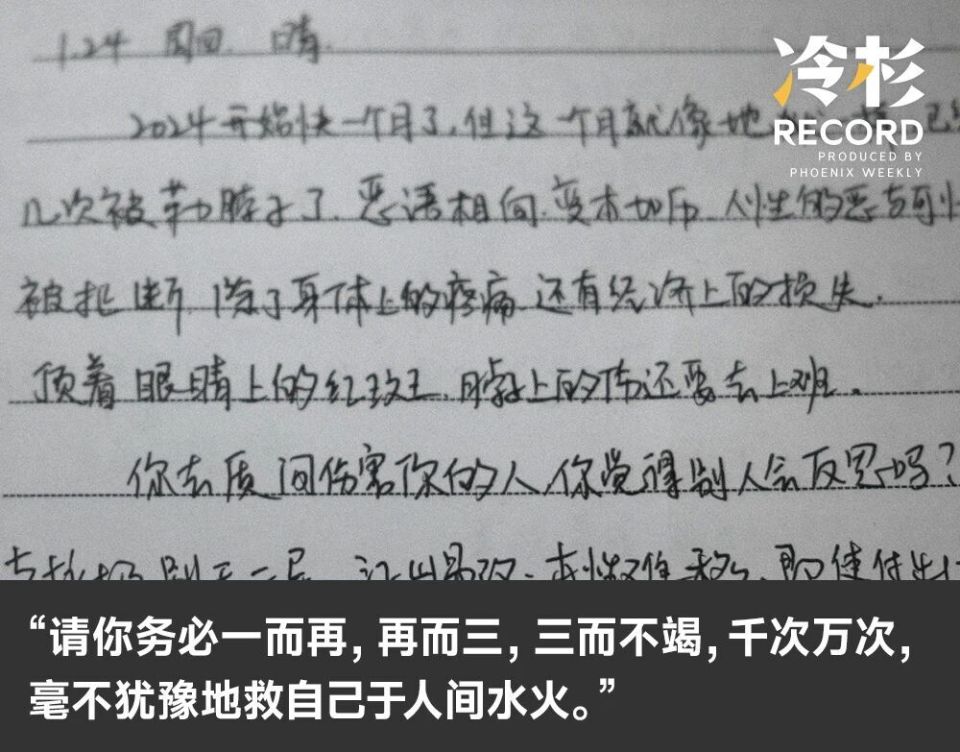 1.24 周四. 晴.
冷杉
RECORD
PRODUCED BY
PHOENIX WEEKLY
2024开始快一个月了,但这一个月就像地
几次被勒脖子了.恶语相向.变本加厉.人性的恶与可
被扼断.除了身体上的疼痛.还有经济上的损失.
顶着眼睛上的红斑.脖子上的伤还要去上班.
你去质问伤害你的人,你觉得别人会反思吗?
江山易改.本性难移.即使
“请你务必一而再,再而三,三而不竭,千次万次,
毫不犹豫地救自己于人间水火。”